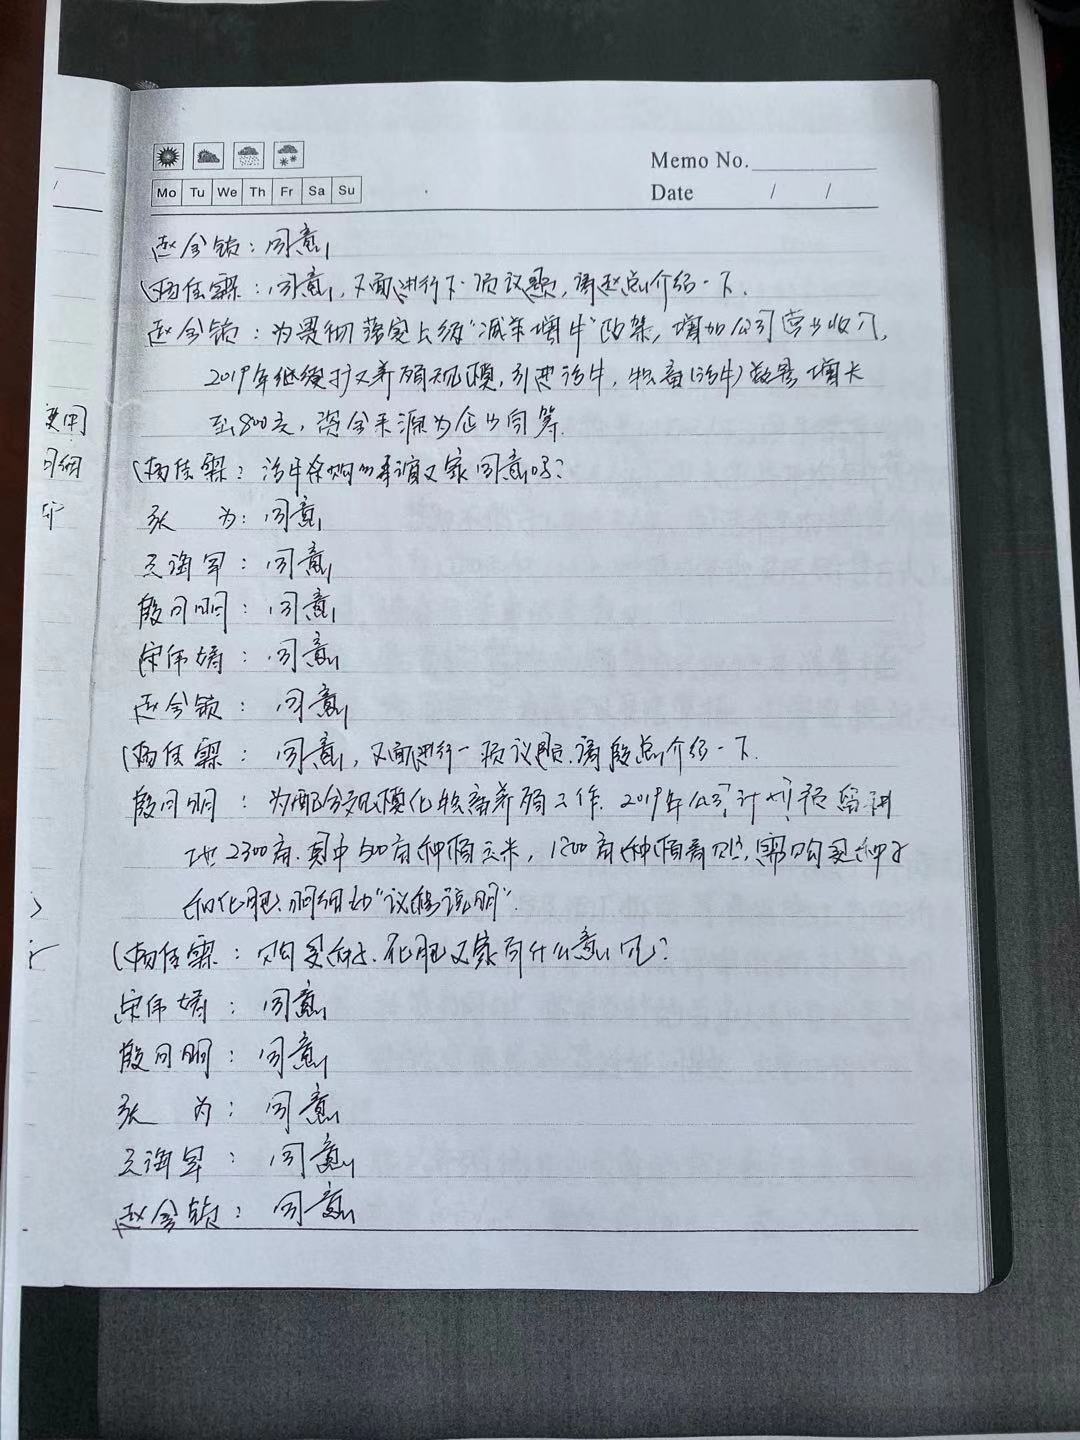 Memo No.
Mo Tu We Th Fr Sa Su
Date / /
赵金锁：同意
杨佳霖：同意，下面进行下一项议题，请赵总介绍一下.
赵金锁：为贯彻落实上级"减羊增牛"政策，增加公司营业收入，
2019年继续扩大养殖规模，引进活牛，牧畜(活牛)数量增长
至800头，资金来源为企业自筹.
杨佳霖：活牛采购的事宜大家同意吗？
张 为：同意
王海军：同意
殷月明：同意
宋伟婧：同意
赵金锁：同意
杨佳霖：同意，下面进行一项议题.请殷总介绍一下.
殷月明：为配合规模化牧畜养殖工作.2019年公司计划预留耕
地2300亩.其中500亩种植玉米，1800亩种植青贮，需购买种子
和化肥.明细如"议程说明".
杨佳霖：购买种子.化肥大家有什么意见？
宋伟婧：同意
殷月明：同意
张 为：同意
王海军：同意
赵金锁：同意
使用
明细